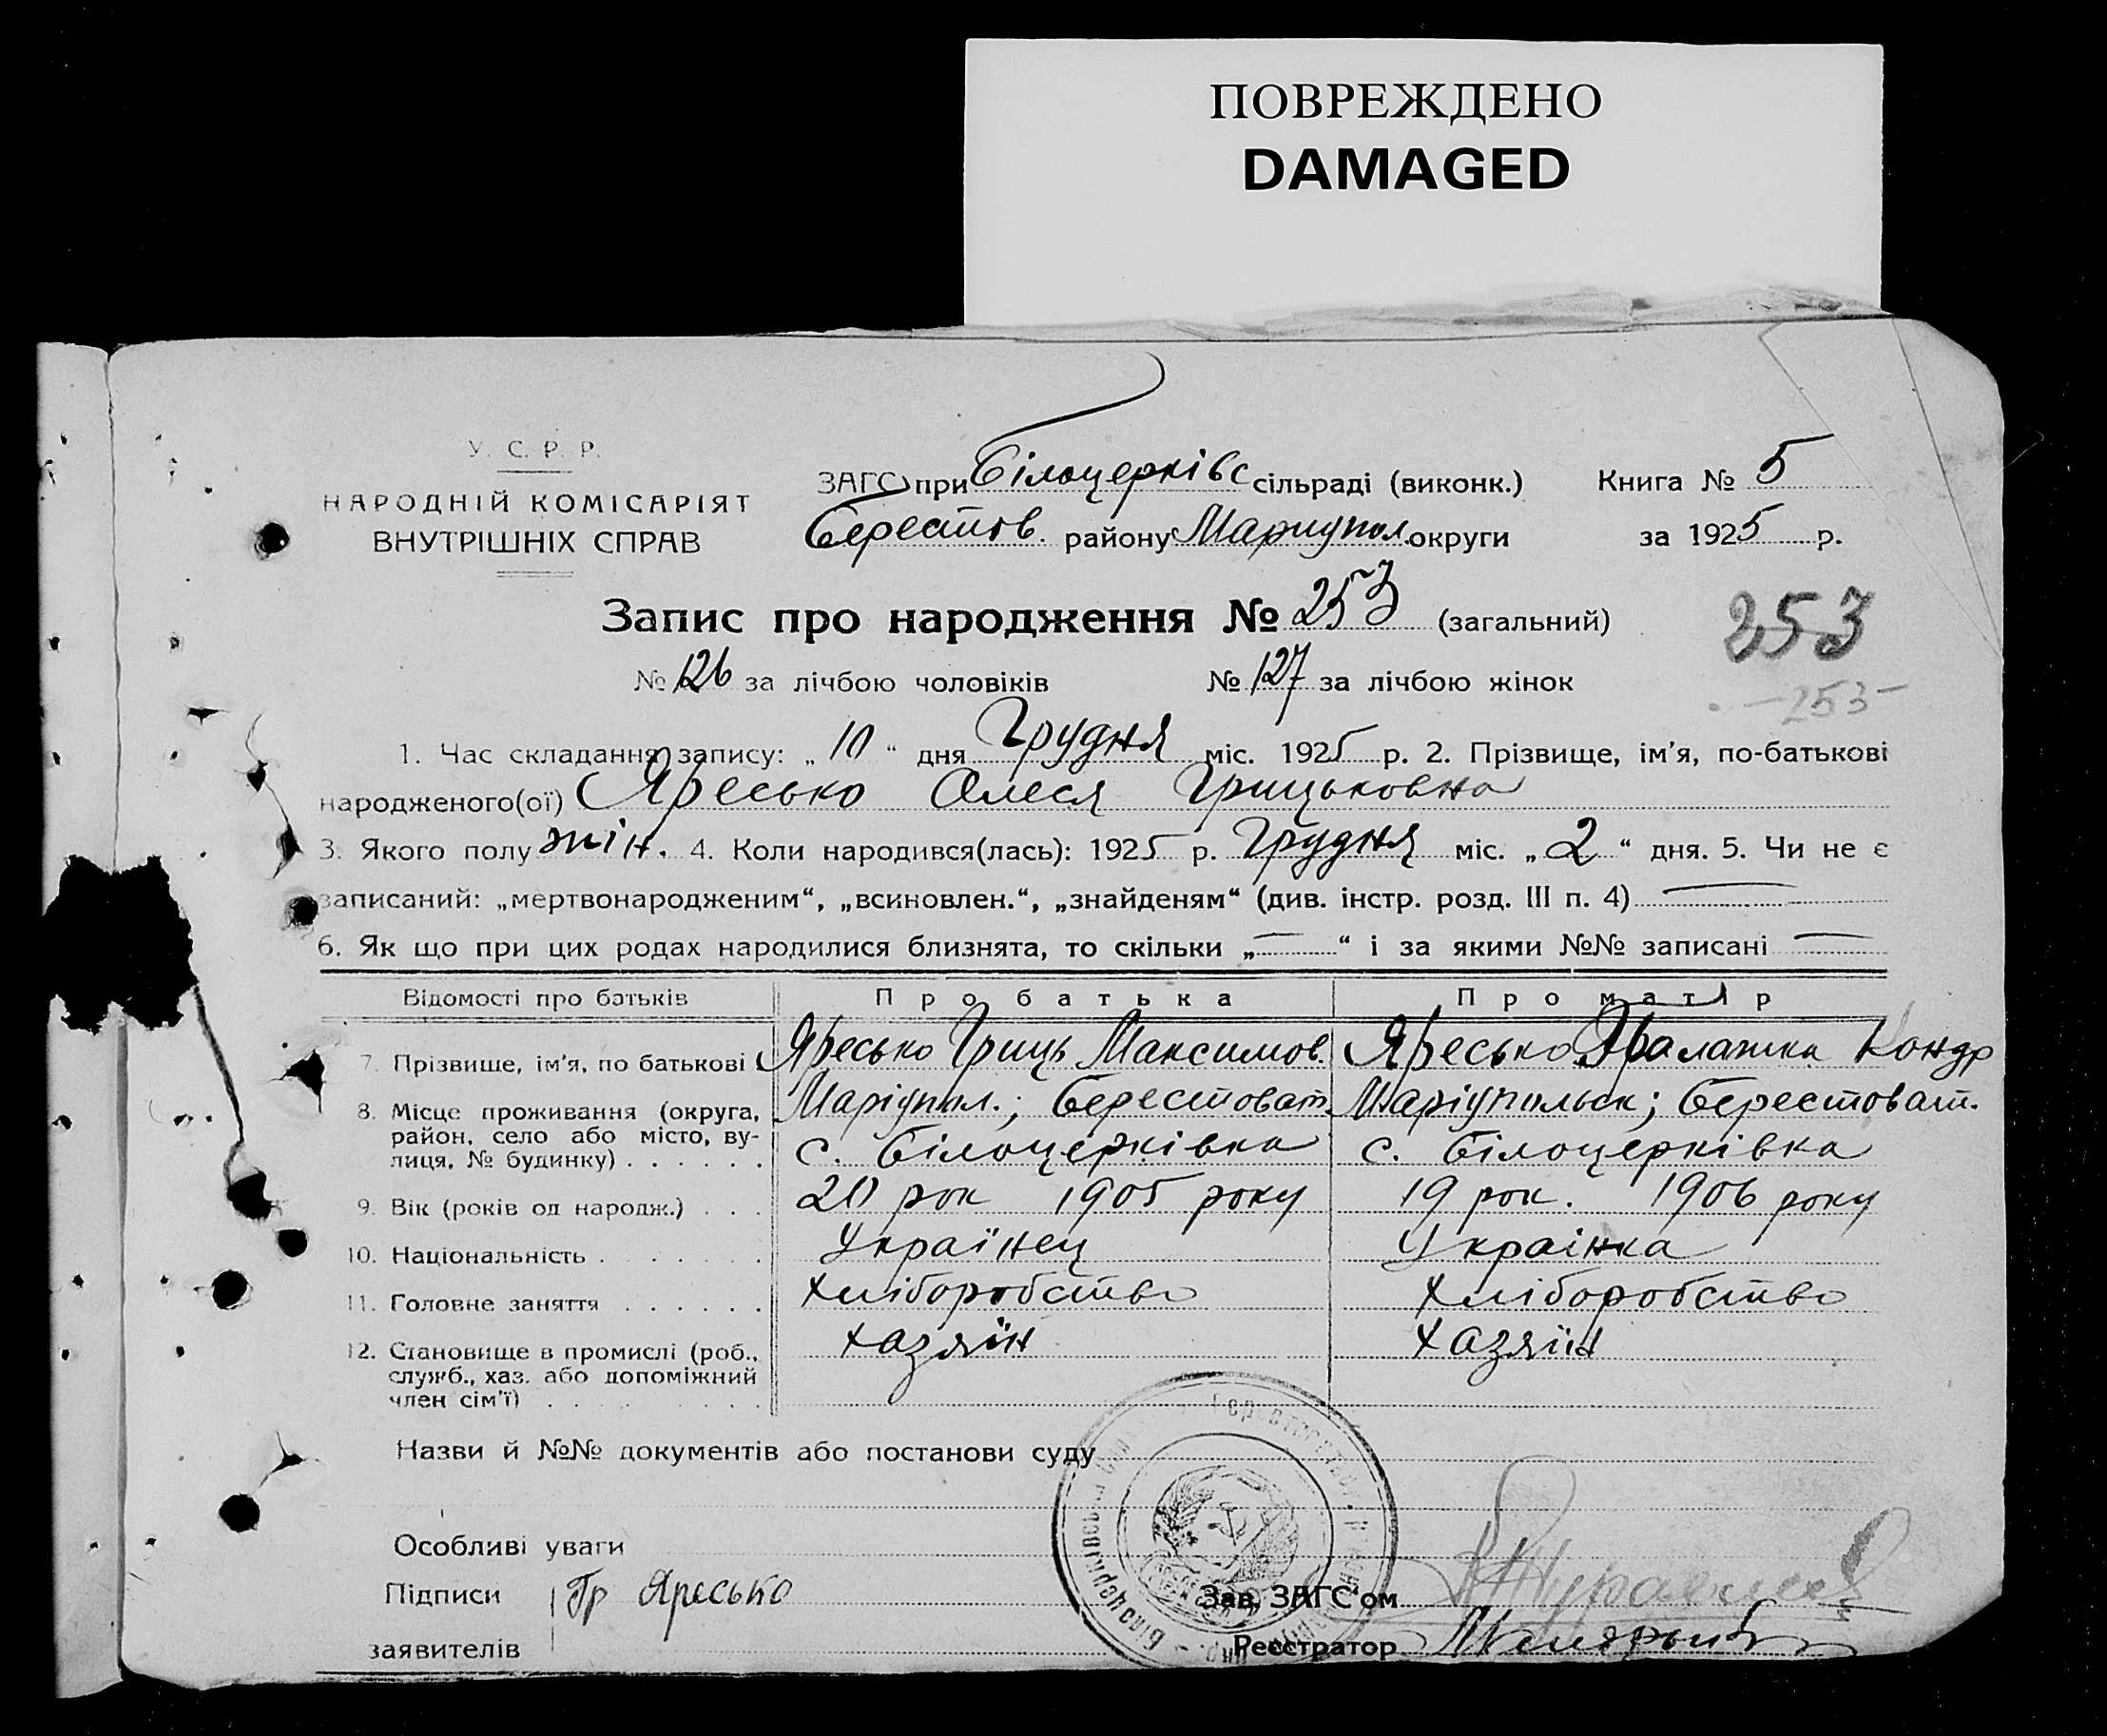 ПОВРЕЖДЕНО
DAMAGED
У. С. Р. Р.
НАРОДНІЙ КОМІСАРІЯТ
ВНУТРІШНІХ СПРАВ
ЗАГС при Білоцерківс сільраді (виконк.) Книга № 5
Берестов. району Мариупол. округи за 1925 р.
Запис про народження № 253 (загальний)
253
№ 126 за лічбою чоловіків № 127 за лічбою жінок
253
1. Час складання запису: „10“ дня Грудня міс. 1925 р. 2. Прізвище, ім’я, по-батькові
народженого(ої) Яресько Олеся Грицьковна
3. Якого полу жін. 4. Коли народився(лась): 1925 р. Грудня міс. „2“ дня. 5. Чи не є
записаний: „мертвонародженим“, „всиновлен.“, „знайденям“ (див. інстр. розд. III п. 4) —
6. Як що при цих родах народилися близнята, то скільки „—“ і за якими №№ записані —
Відомості про батьків Про батька Про матір
7. Прізвише, ім’я, по батькові Яресько Гриць Максимов. Яресько Палажка Кондр
8. Місце проживання (округа, Маріупол.; Берестоват. Маріупольск; Берестоват.
район, село або місто, ву-
лиця, № будинку) . . . . . . с. Білоцерківка с. Білоцерківка
9. Вік (років од народж.) . . . 20 рок 1905 року 19 рок. 1906 року
10. Національність . . . . . . Українец Украінка
11. Головне заняття . . . . . . Хліборобство Хліборобство
12. Становище в промислі (роб., хазяїн хазяїн
служб., хаз. або допоміжний
член сім’ї) . . . . . . . .
Назви й №№ документів або постанови суду
Особливі уваги
Підписи Гр Яресько Зав. ЗАГС‘ом
заявителів Реєстратор